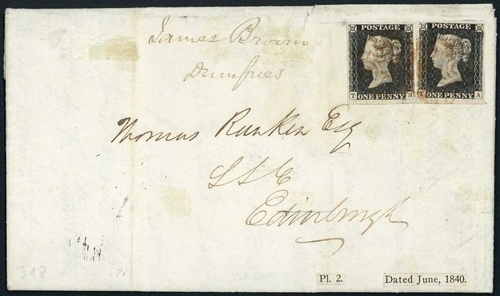 James Brown
Dumfries
POSTAGE POSTAGE
ONE PENNY ONE PENNY
Thomas Ranken Esq
SSC
Edinburgh
318
Pl. 2.
Dated June, 1840.